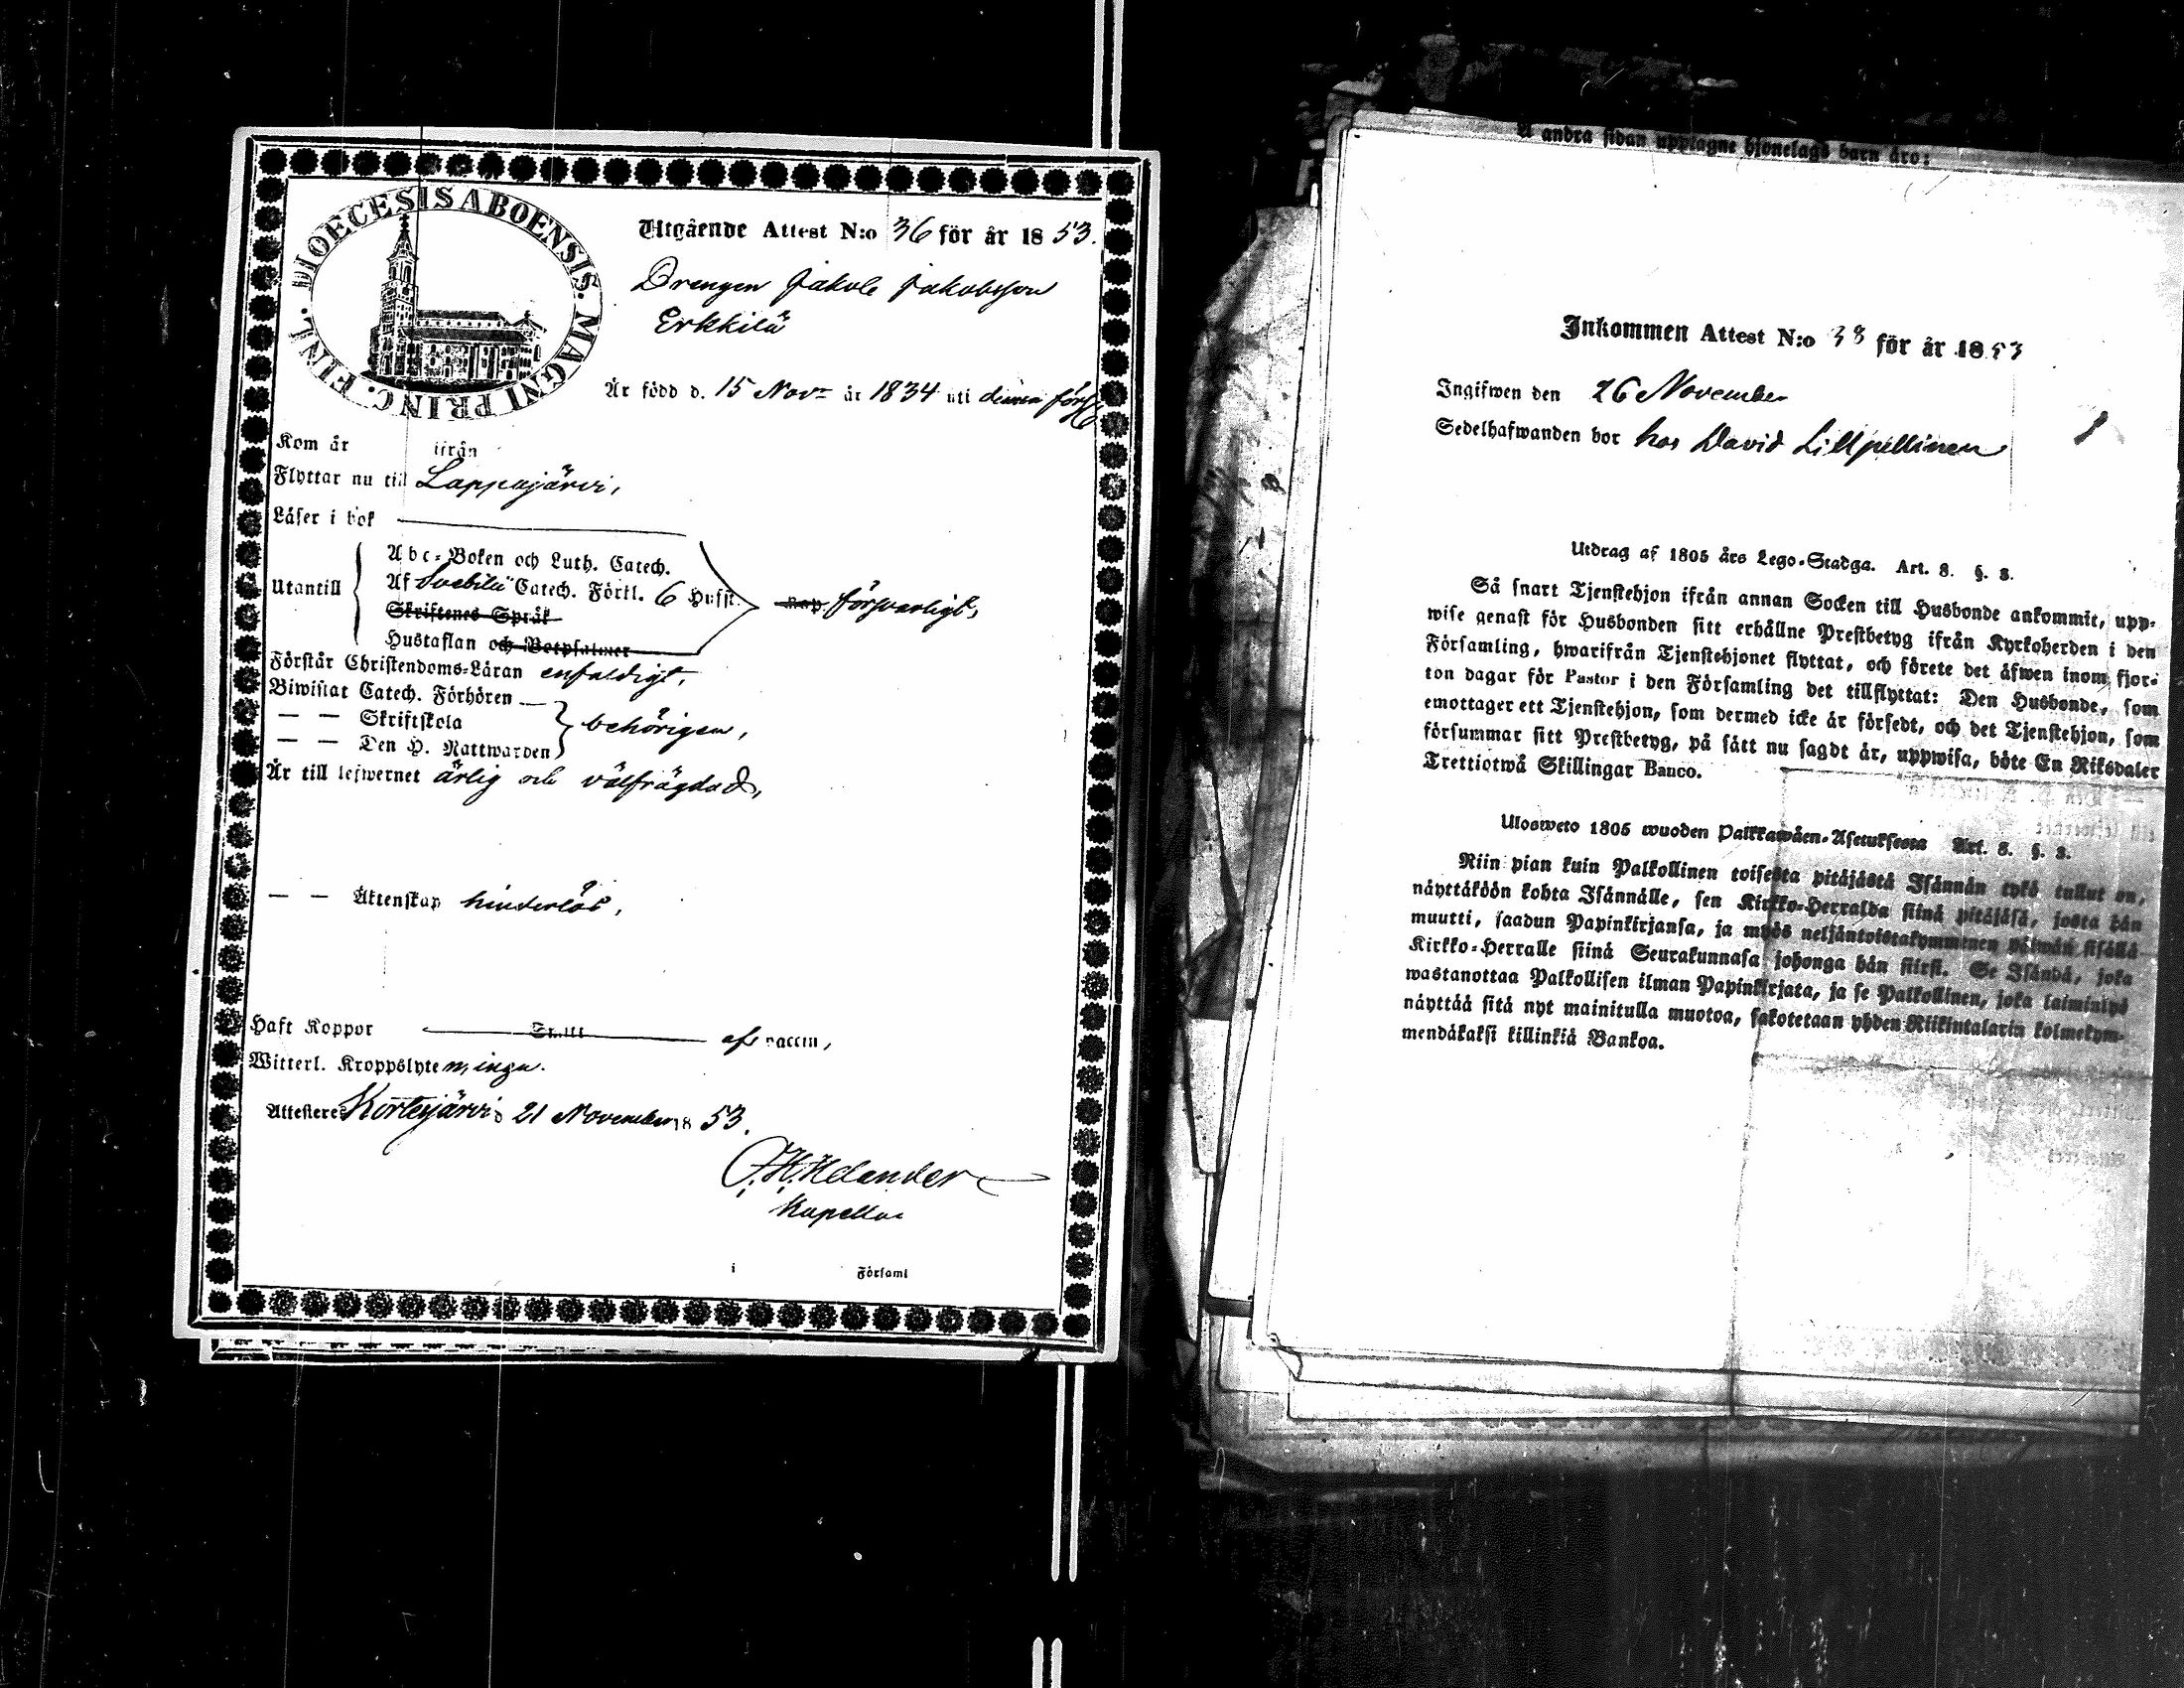 DIOECESIS ABOENSIS. MAGNI PRINC. FINL.
Utgående Attest N:o 36 för år 1853.
Drengen Jakob Jakobsson
Erkkilä
Är född d. 15 Novr år 1834 uti denna förs
Kom år ifrån
Flyttar nu till Lappajärvi,
Läser i bok
Utantill
Abc-Boken och Luth. Catech.
Af Svebilii Catech. Förkl. 6 Hufst.
Skriftenes Språk
Hustaflan och Botpsalmer
försvarligt,
Förstår Christendoms-Läran enfaldigt,
Biwistat Catech. Förhören
— — Skriftskola
— — Den H. Nattwarden
behörigen,
Är till lefwernet ärlig och välfrägdad,
— — Äktenskap hinderlös,
Haft Koppor
af vaccin,
Witterl. Kroppslyten, inga.
Attesteres Kortesjärvi d 21 November 1853.
Helander
Kapellan
i Församl
Å andra sidan upptagne hjonelags barn äro:
Inkommen Attest N:o 38 för år 1853
Ingifwen den 26 November
Sedelhafwanden bor hos David Lillpellinen
Utdrag af 1805 års Lego-Stadga. Art. 8. §. 3.
Så snart Tjenstehjon ifrån annan Socken till Husbonde ankommit, upp-
wise genast för Husbonden sitt erhållne Prestbetyg ifrån Kyrkoherden i den
Församling, hwarifrån Tjenstehjonet flyttat, och förete det äfwen inom fjor-
ton dagar för Pastor i den Församling det tillflyttat: Den Husbonde, som
emottager ett Tjenstehjon, som dermed icke är försedt, och det Tjenstehjon, som
försummar sitt Prestbetyg, på sätt nu sagdt är, uppwisa, böte En Riksdaler
Trettiotwå Skillingar Banco.
Ulosweto 1805 wuoden Palkkawäen-Asetuksesta Art. 8. §. 3.
Niin pian kuin Palkollinen toisesta pitäjästä Isännän tykö tullut on,
näyttäköön kohta Isännälle, sen Kirkko-Herralda siinä pitäjäsä, josta hän
muutti, saadun Papinkirjansa, ja myös neljäntoistakymmenen päiwän sisällä
Kirkko-Herralle siinä Seurakunnasa johonga hän siirsi. Se Isändä, joka
wastanottaa Palkollisen ilman Papinkirjata, ja se Palkollinen, joka laiminlyö
näyttää sitä nyt mainitulla muotoa, sakotetaan yhden Riikintalarin kolmekym-
mendäkaksi killinkiä Bankoa.